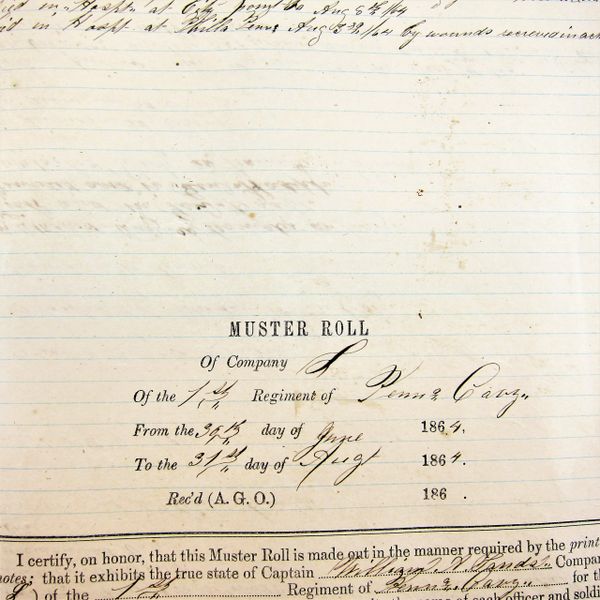 in Hospt at City point Va Aug 8th/64
in Hospt at Phila Penna Aug /64 by wounds received in
MUSTER ROLL
Of Company L
Of the 1st Regiment of Penna Cavy.
From the 30th day of June 1864,
To the 31st day of Augt 1864.
Rec'd (A. G. O.) 186 .
I certify, on honor, that this Muster Roll is made out in the manner required by the print
notes; that it exhibits the true state of Captain William H. Compa
) of the 1st Regiment of Penna Cavy. for th
each officer and soldi